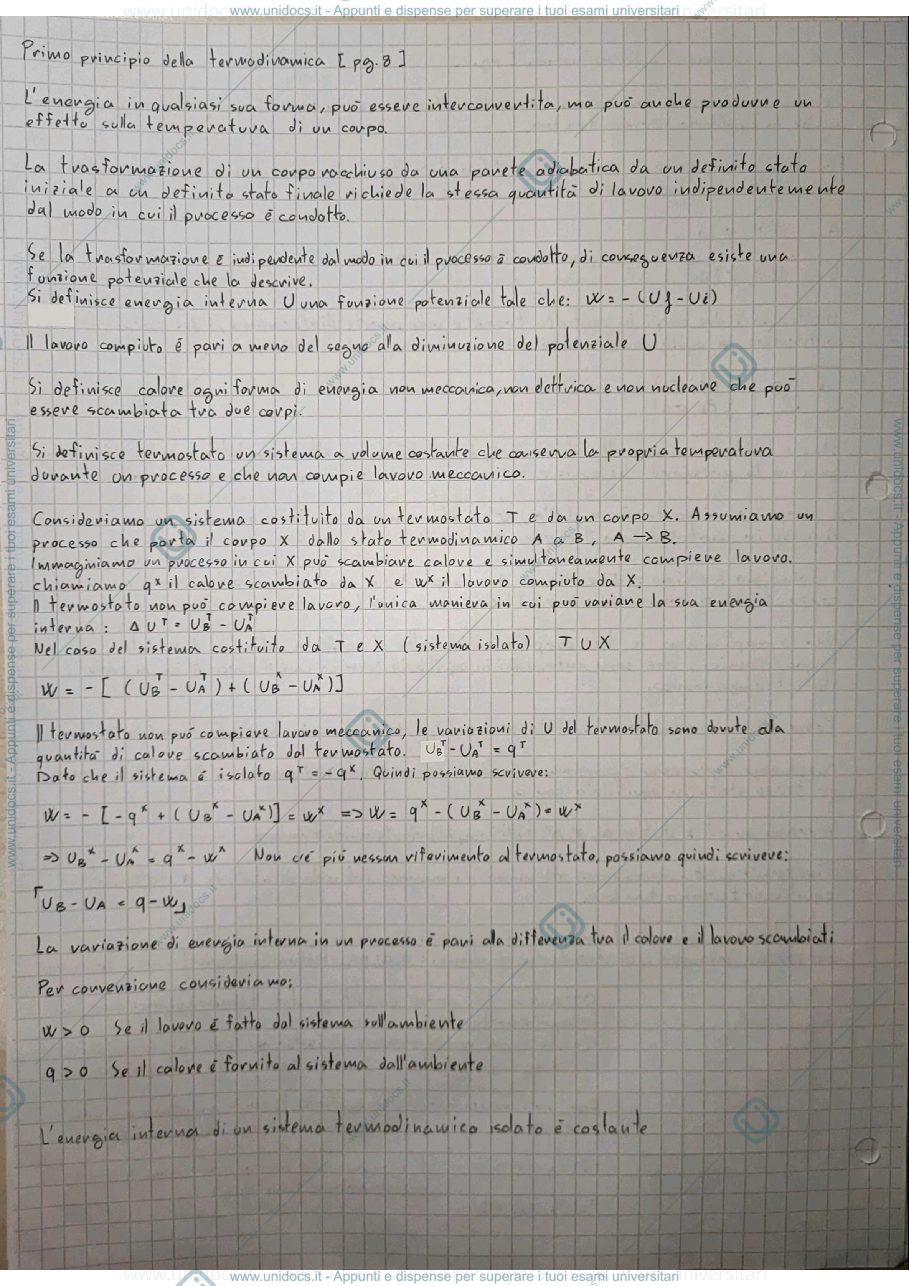 www.unidocs.it - Appunti e dispense per superare i tuoi esami universitari
Primo principio della termodinamica [pg. 8]
L'energia in qualsiasi sua forma, può essere interconvertita, ma può anche produrre un
effetto sulla temperatura di un corpo.
La trasformazione di un corpo racchiuso da una parete adiabatica da un definito stato
iniziale a un definito stato finale richiede la stessa quantità di lavoro indipendentemente
dal modo in cui il processo è condotto.
Se la trasformazione è indipendente dal modo in cui il processo è condotto, di conseguenza esiste una
funzione potenziale che la descrive.
Si definisce energia interna U una funzione potenziale tale che: W = - (Uf - Ui)
Il lavoro compiuto è pari a meno del segno alla diminuzione del potenziale U
Si definisce calore ogni forma di energia non meccanica, non elettrica e non nucleare che può
essere scambiata tra due corpi.
Si definisce termostato un sistema a volume costante che conserva la propria temperatura
durante un processo e che non compie lavoro meccanico.
Consideriamo un sistema costituito da un termostato T e da un corpo X. Assumiamo un
processo che porta il corpo X dallo stato termodinamico A a B, A → B.
Immaginiamo un processo in cui X può scambiare calore e simultaneamente compiere lavoro.
chiamiamo qˣ il calore scambiato da X e wˣ il lavoro compiuto da X.
Il termostato non può compiere lavoro, l'unica maniera in cui può variare la sua energia
interna: ΔUᵀ = U_Bᵀ - U_Aᵀ
Nel caso del sistema costituito da T e X (sistema isolato) T ∪ X
W = - [ (U_Bᵀ - U_Aᵀ) + (U_Bˣ - U_Aˣ)]
Il termostato non può compiere lavoro meccanico, le variazioni di U del termostato sono dovute alla
quantità di calore scambiato dal termostato. U_Bᵀ - U_Aᵀ = qᵀ
Dato che il sistema è isolato qᵀ = -qˣ. Quindi possiamo scrivere:
W = - [-qˣ + (U_Bˣ - U_Aˣ)] = wˣ => W = qˣ - (U_Bˣ - U_Aˣ) = wˣ
=> U_Bˣ - U_Aˣ = qˣ - wˣ Non c'è più nessun riferimento al termostato, possiamo quindi scrivere:
⌈U_B - U_A = q - w⌋
La variazione di energia interna in un processo è pari alla differenza tra il calore e il lavoro scambiati
Per convenzione consideriamo:
W > 0 Se il lavoro è fatto dal sistema sull'ambiente
q > 0 Se il calore è fornito al sistema dall'ambiente
L'energia interna di un sistema termodinamico isolato è costante
www.unidocs.it - Appunti e dispense per superare i tuoi esami universitari
www.unidocs.it - Appunti e dispense per superare i tuoi esami universitari
www.unidocs.it - Appunti e dispense per superare i tuoi esami universitari